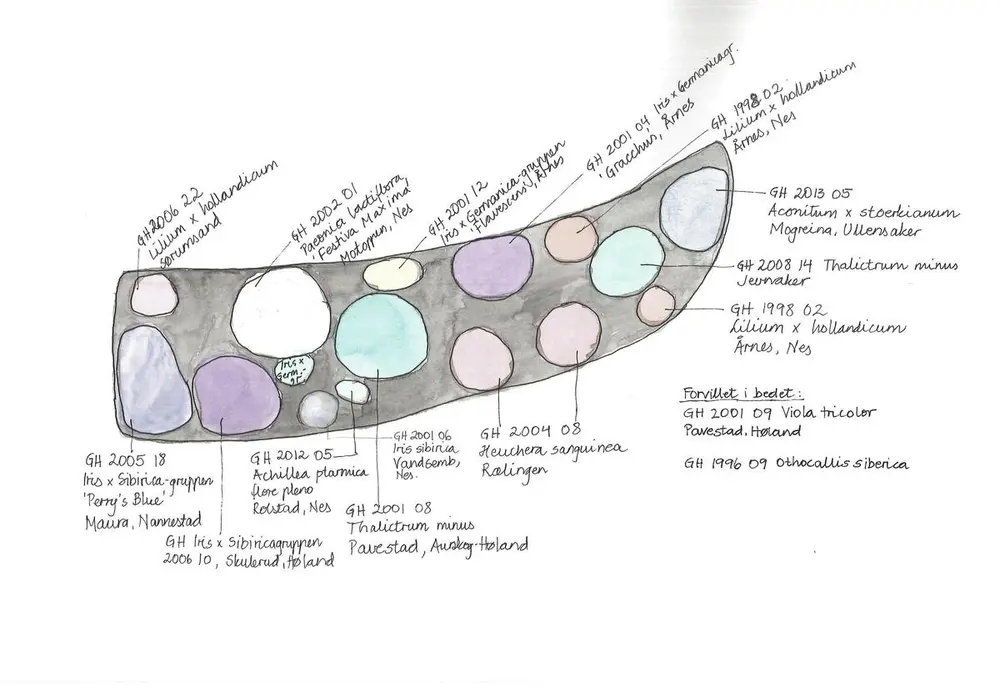 GH 2006 22
Lilium x hollandicum
Sørumsand
GH 2002 01
Paeonia lactiflora,
'Festiva Maxima'
Motoppen, Nes
GH 2001 12
Iris x Germanica-gruppen
'Flavescens', Årnes
GH 2001 04 Iris x Germanicagr.
'Gracchus', Årnes
GH 1998 02
Lilium x hollandicum
Årnes, Nes
GH 2013 05
Aconitum x stoerkianum
Mogreina, Ullensaker
GH 2008 14 Thalictrum minus
Jevnaker
GH 1998 02
Lilium x hollandicum
Årnes, Nes
Iris x
Germ.-
gr.
Forvillet i bedet:
GH 2001 09 Viola tricolor
Pavestad, Høland
GH 1996 09 Othocallis siberica
GH 2005 18
Iris x Sibirica-gruppen
'Perry's Blue'
Maura, Nannestad
GH Iris x Sibiricagruppen
2006 10, Skulerud, Høland
GH 2012 05
Achillea ptarmica
flore pleno
Rolstad, Nes
GH 2001 08
Thalictrum minus
Pavestad, Aurskog-Høland
GH 2001 06
Iris sibirica
Vandsemb,
Nes.
GH 2004 08
Heuchera sanguinea
Rælingen